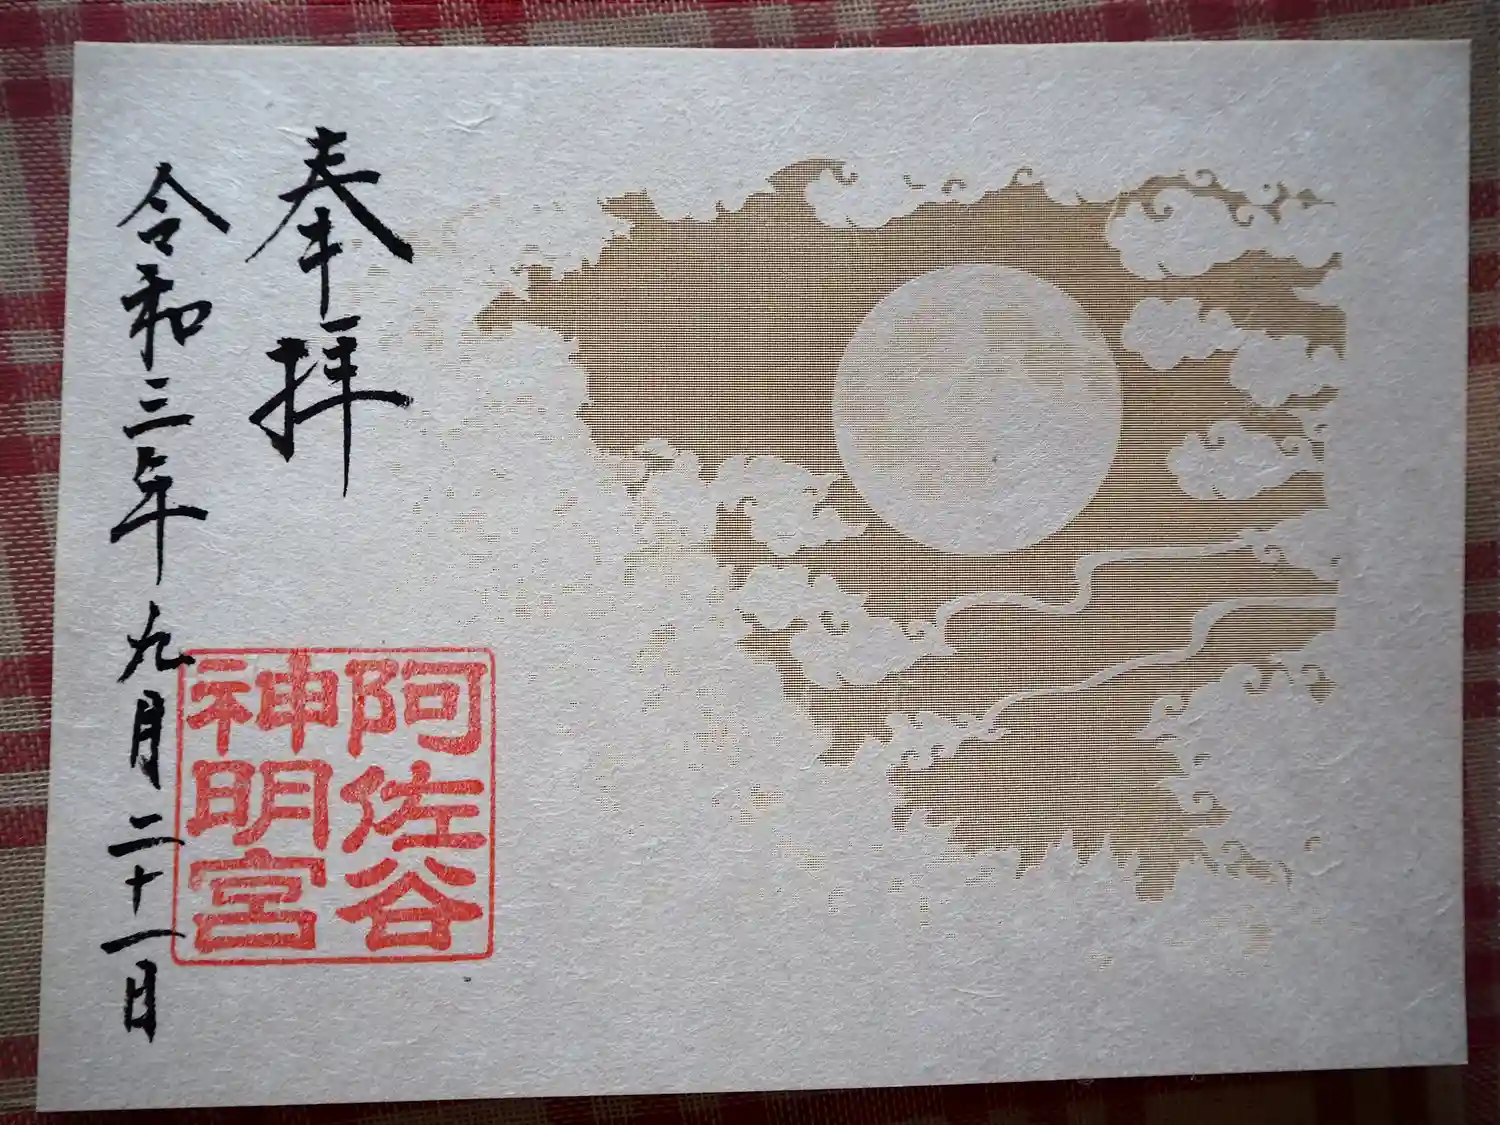 奉拝
阿佐谷
神明宮
令和三年九月二十一日